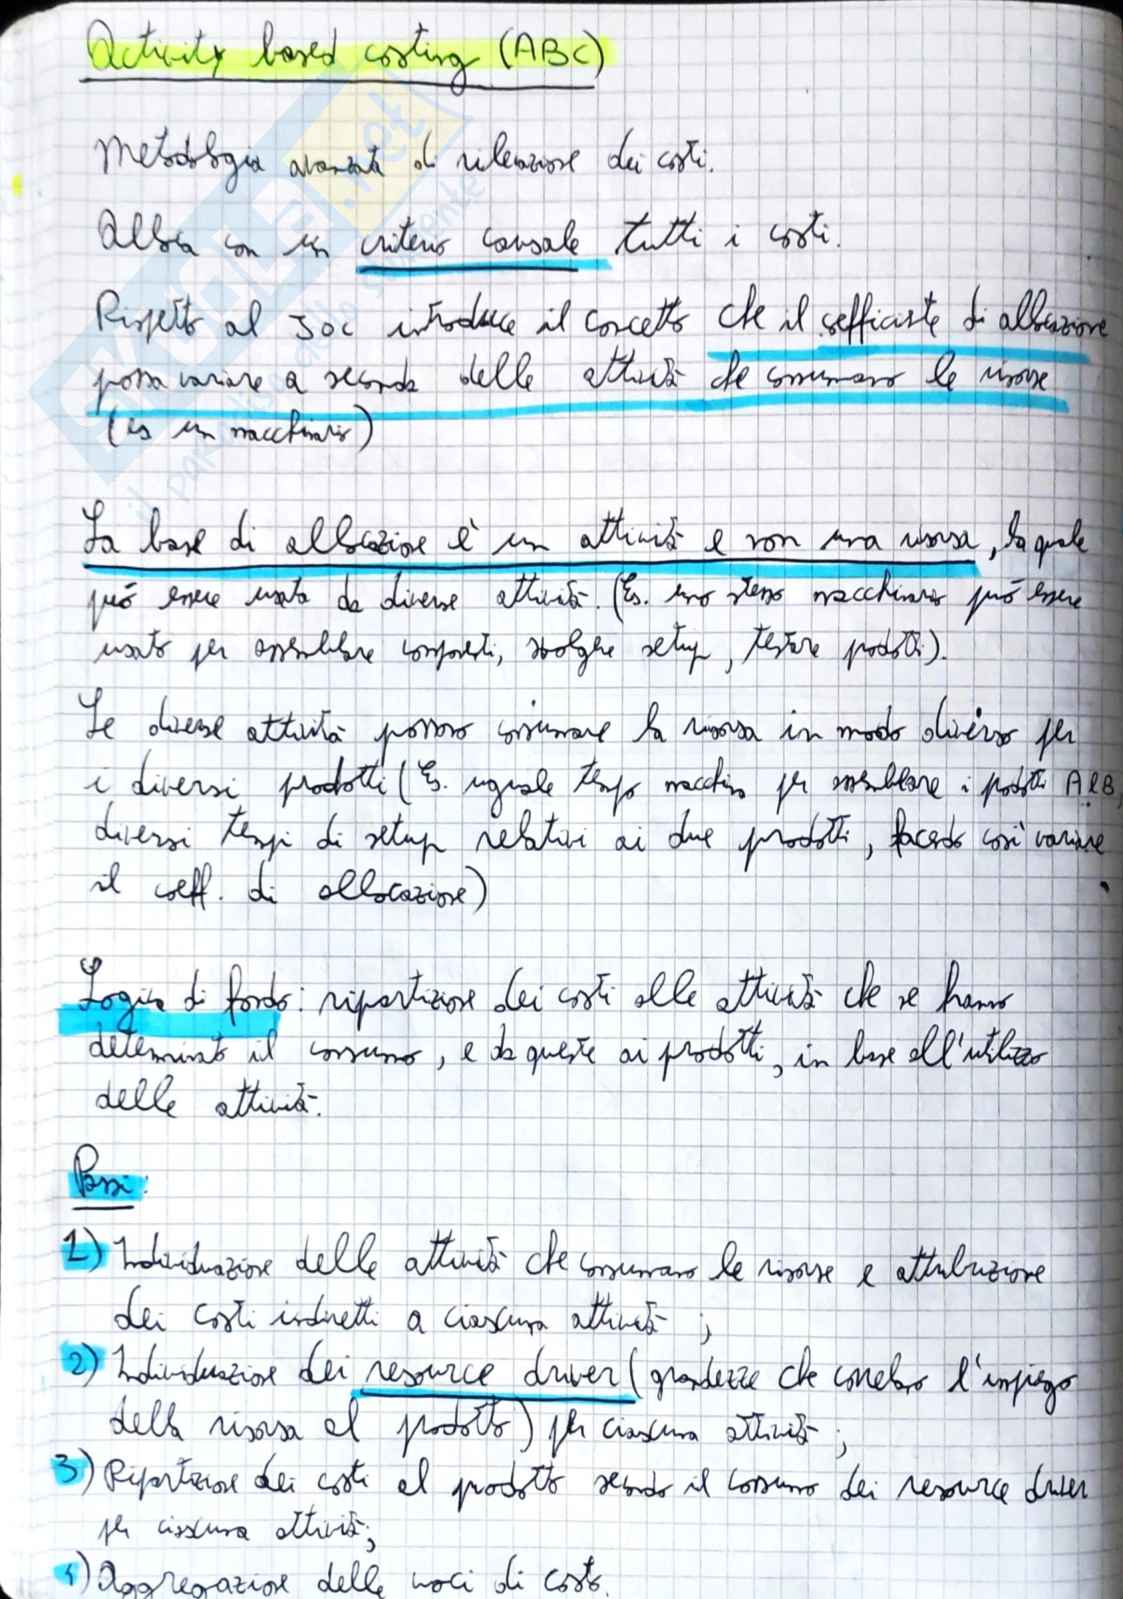 Activity based costing (ABC)
Metodologia avanzata di rilevazione dei costi.
Alloca con un criterio causale tutti i costi.
Rispetto al JOC introduce il concetto che il coefficiente di allocazione
possa variare a seconda delle attività che consumano le risorse
(es un macchinario)
La base di allocazione è un attività e non una risorsa, la quale
può essere usata da diverse attività. (Es. uno stesso macchinario può essere
usato per assemblare componenti, svolgere setup, testare prodotti).
Le diverse attività possono consumare la risorsa in modo diverso per
i diversi prodotti (Es. uguale tempo macchina per assemblare i prodotti A e B,
diversi tempi di setup relativi ai due prodotti, facendo così variare
il coeff. di allocazione)
Logica di fondo: ripartizione dei costi alle attività che se hanno
determinato il consumo, e da queste ai prodotti, in base all'utilizzo
delle attività.
Passi:
1) Individuazione delle attività che consumano le risorse e attribuzione
dei costi indiretti a ciascuna attività;
2) Individuazione dei resource driver (grandezze che correlano l'impiego
della risorsa al prodotto) per ciascuna attività;
3) Ripartizione dei costi al prodotto secondo il consumo dei resource driver
per ciascuna attività;
4) Aggregazione delle voci di costo.